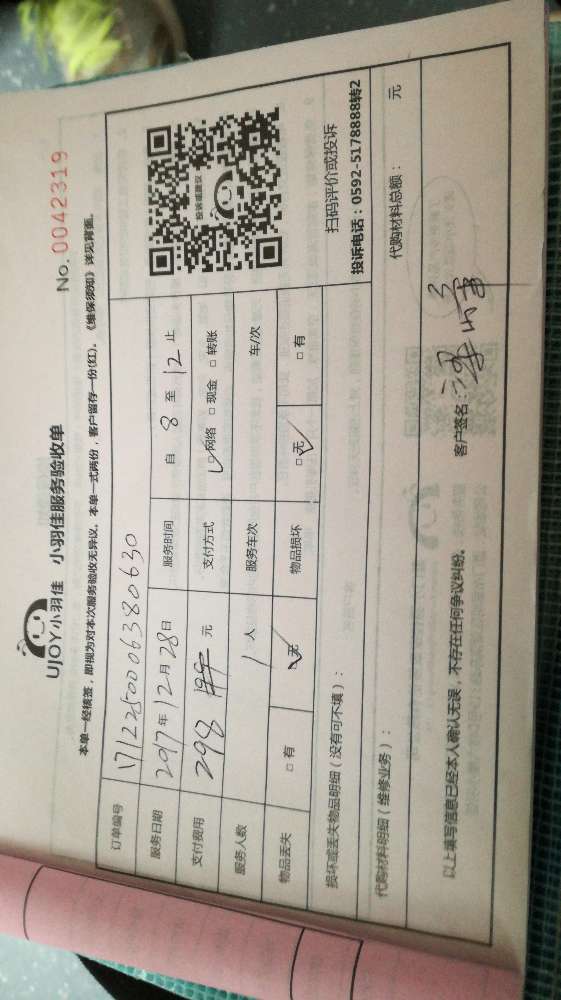 UJOY小羽佳 小羽佳服务验收单
No. 0042319
本单一经核签，即视为对本次服务验收无异议。本单一式两份，客户留存一份(红)。《维保须知》详见背面。
订单编号 17122500063 80630
服务日期 2017年12月28日 服务时间 自 8 至 12 止
支付费用 298 元 支付方式 ☑网络 □现金 □转账
服务人数 1人 服务车次 车/次
物品丢失 □有 ☑无 物品损坏 ☑无 □有
投诉或建议
扫码评价或投诉
投诉电话：0592-5178888转2
损坏或丢失物品明细（没有可不填）：
代购材料明细（维修业务）： 代购材料总额： 元
以上填写信息已经本人确认无误，不存在任何争议纠纷。 客户签名：